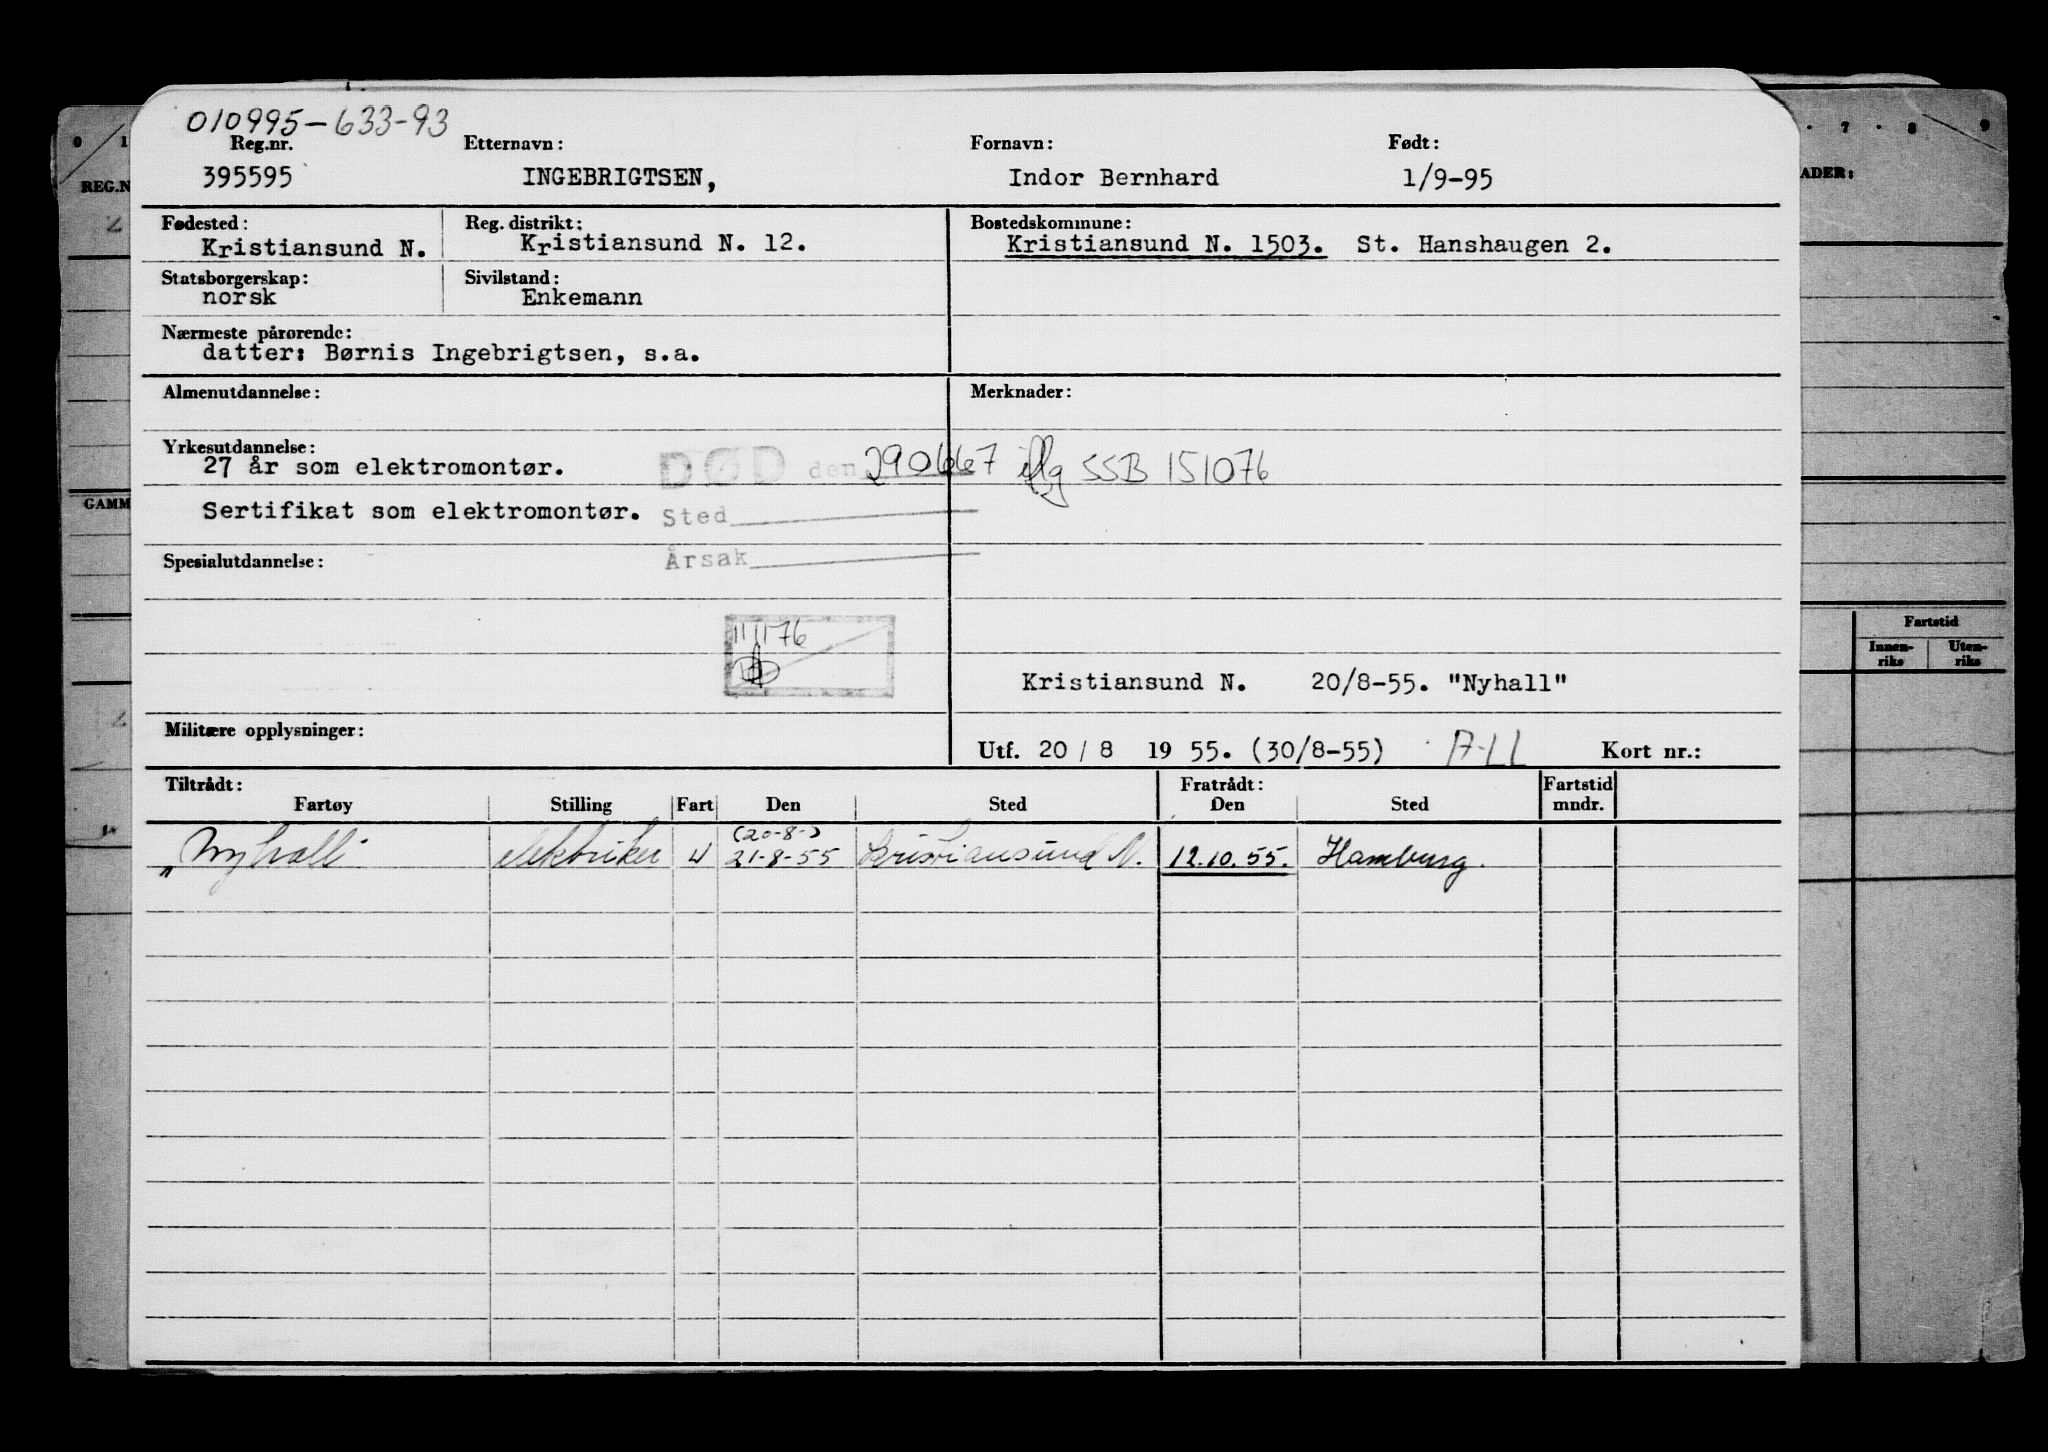 010995-633-93
Reg.nr. Etternavn: Fornavn: Født:
395595 INGEBRIGTSEN, Indor Bernhard 1/9-95
Fødested: Reg. distrikt: Bostedskommune:
Kristiansund N. Kristiansund N. 12. Kristiansund N. 1503. St. Hanshaugen 2.
Statsborgerskap: Sivilstand:
norsk Enkemann
Nærmeste pårørende:
datter: Børnis Ingebrigtsen, s.a.
Almenutdannelse: Merknader:
Yrkesutdannelse:
27 år som elektromontør. DØD den 290667 iflg SSB 151076
Sertifikat som elektromontør. Sted
Spesialutdannelse: Årsak
11/1 76
Kristiansund N. 20/8-55. "Nyhall"
Militære opplysninger:
Utf. 20 / 8 19 55. (30/8-55) A-LL Kort nr.:
Tiltrådt: Fratrådt: Fartstid
Fartøy Stilling Fart Den Sted Den Sted mndr.
(20-8-)
"Nyhall" elektriker U 21-8-55 Kristiansund N. 12.10.55. Hamburg.
0 1
REG.N
GAMM
7 8 9
ADER:
Fartstid
Innen-
riks
Uten-
riks